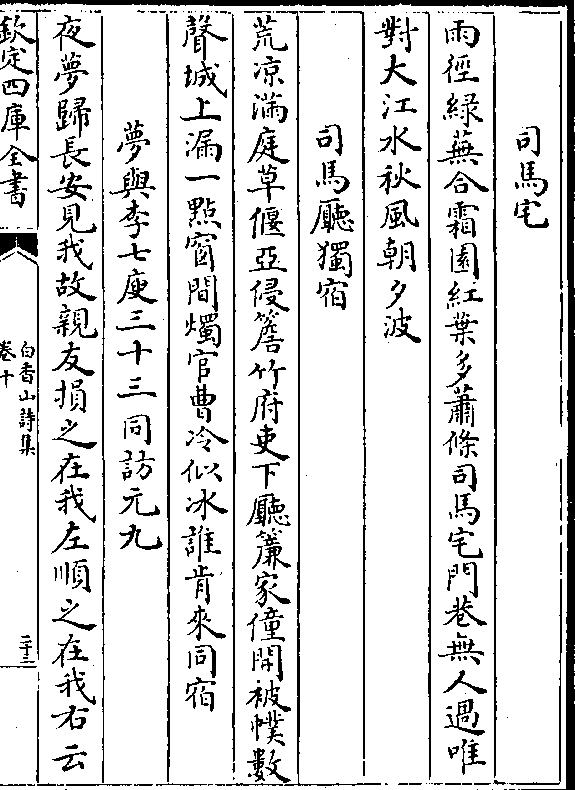 司馬宅
雨徑緑蕪合霜園紅葉多蕭條司馬宅門巷無人過唯
對大江水秋風朝夕波
司馬廳獨宿
荒凉滿庭草偃亞侵簷竹府吏下廳簾家僮開被幞數
聲城上漏一點窗間燭官曹冷似冰誰肯來同宿
夢與李七庾三十三同訪元九
夜夢歸長安見我故親友損之在我左順之在我右云
欽定四庫全書
白香山詩集
卷十
二十三